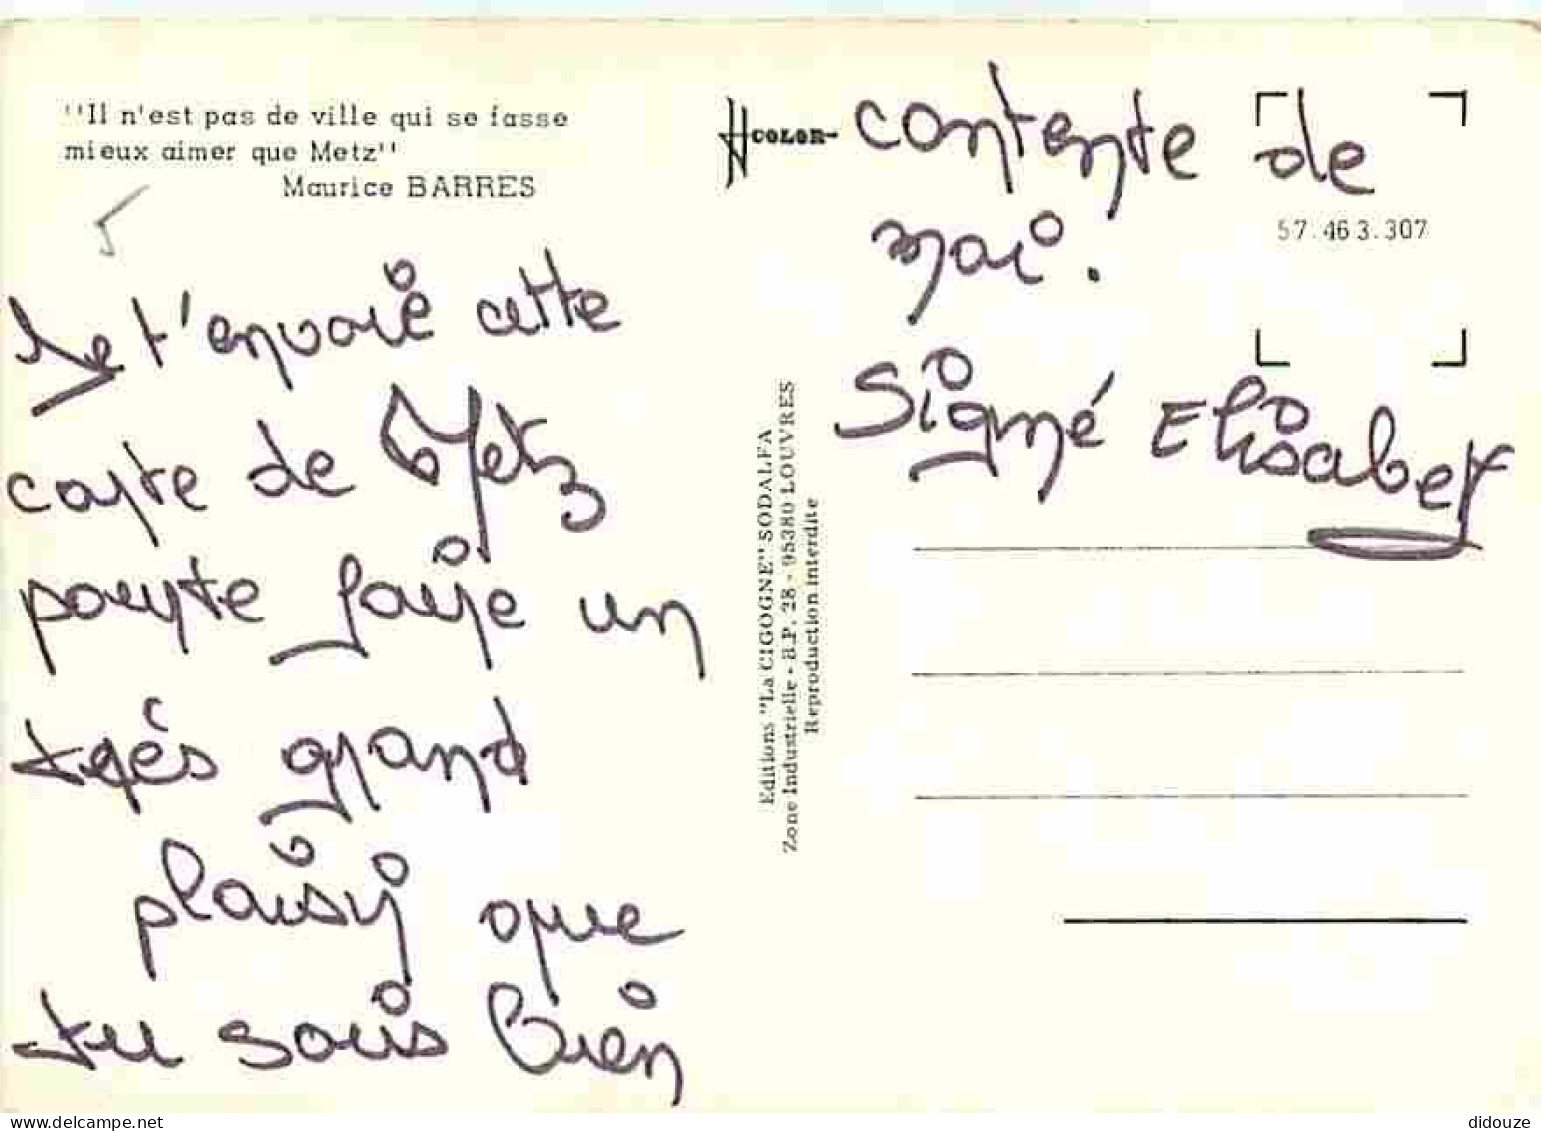 "Il n'est pas de ville qui se fasse
mieux aimer que Metz"
Maurice BARRES
Je t'envoie cette
carte de Metz
pour te faire un
très grand
plaisir que
tu sois bien
COLOR
contente de
moi.
Signé Elisabet
57.463.307
Editions "La CIGOGNE" SODALFA
Zone Industrielle - B.P. 28 - 95380 LOUVRES
Reproduction interdite
delcampe.net
didouze